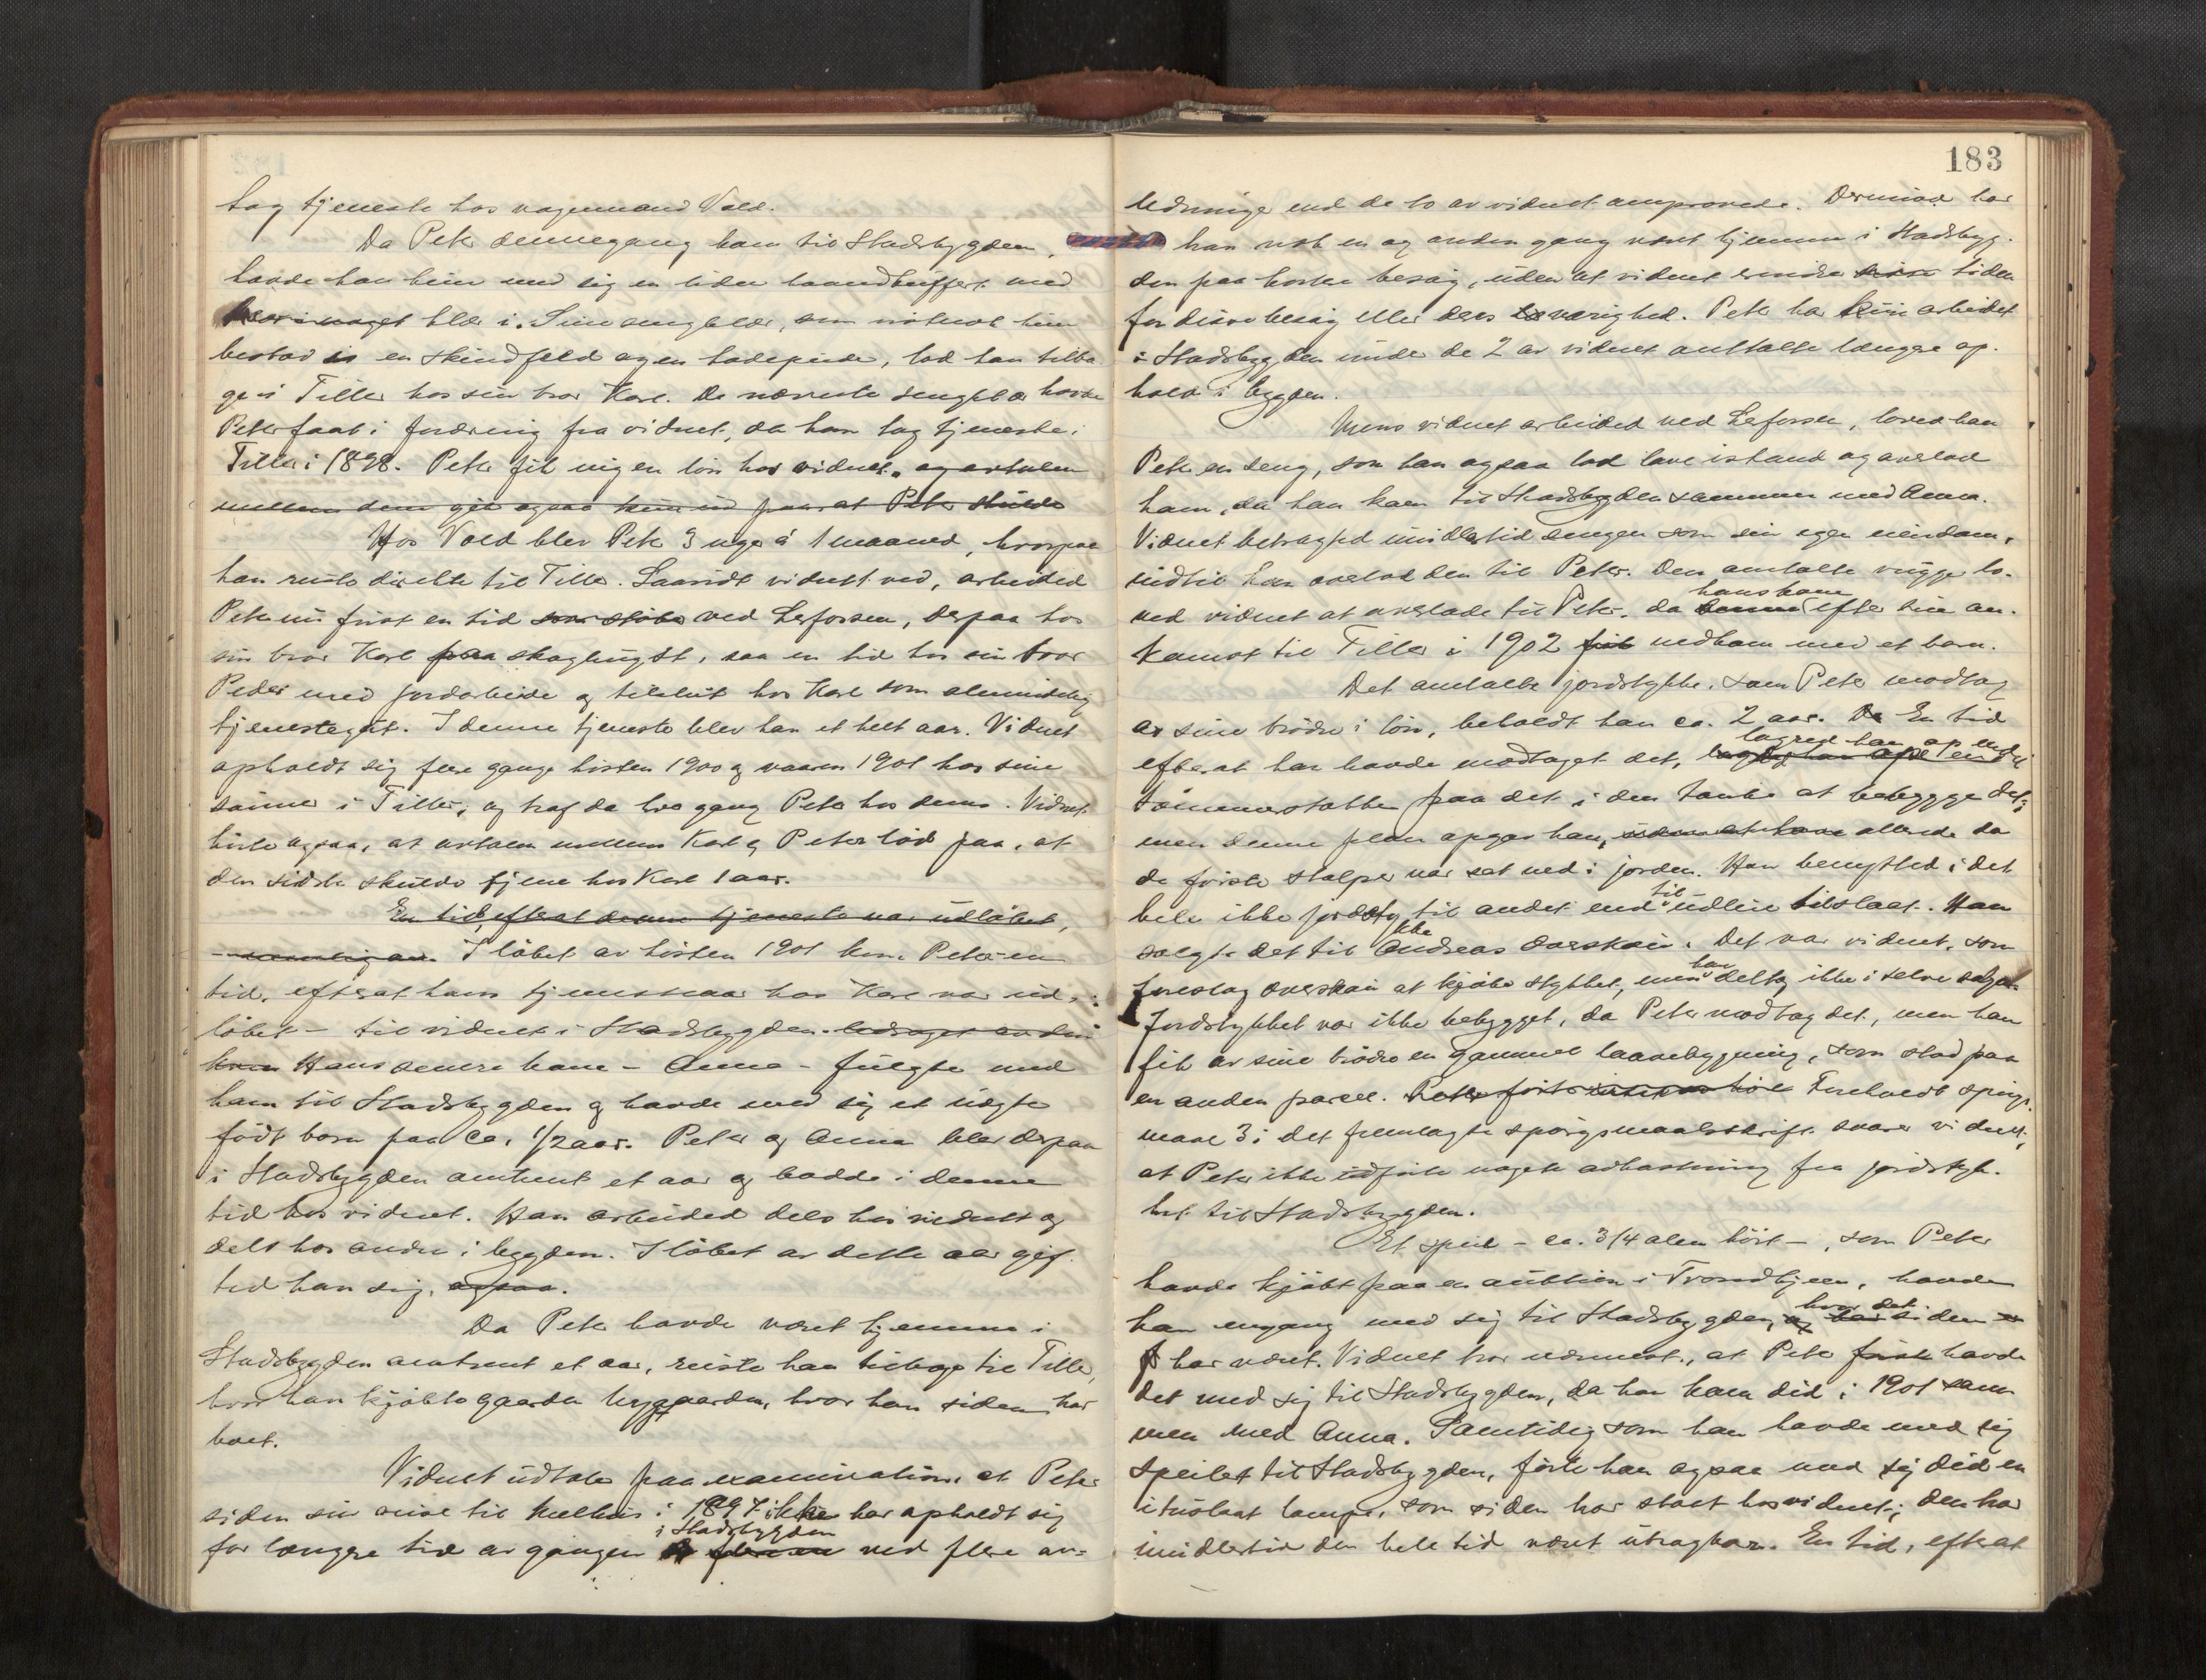 tog tjeneste hos vognmand Vold.
Da Peter dennegang kom til Stadsbygden,
havde han kun med sig en liden haandkuffert med
klær i. Sine sengklær, som vistnok kun
bestod en skindfeld og en hodepude, lod han tilba-
ge i Tiller hos sin bror Karl. De nævnte sengklær havde
Peter faat i foræring fra vidnet, da han tog tjeneste i
Tiller i 1898. Peter fik ingen løn hos vidnet. og avtalen
mellem dem gik ogsaa kun ud paa at Peter skulde
Hos Vold blev Peter 3 uger á 1 maaned, hvorpaa
han reiste direkte til Tiller. Saavidt vidnet ved, arbeided
Peter nu først en tid ved Lerfossen, derpaa hos
sin bror Karl paa skoghugst, saa en tid hos sin bror
Peder med jordarbeide og tilslut hos Karl som almindelig
tjenestegut. I denne tjeneste blev han et helt aar. Vidnet
opholdt sig flere gange høsten 1900 og vaaren 1901 hos sine
sønner i Tiller, og traf da hver gang Peter hos dem. Vidnet
hørte ogsaa, at avtalen mellem Karl og Peter lød paa, at
den sidste skulde tjene hos Karl 1 aar.
En tid, efterat denne tjeneste var udløbet,
I løbet av høsten 1901 kom Peter en
tid, efterat hans tjenesteaar hos Karl var ud-
løbet - til vidnet i Stadsbygden. ledsaget av sin
kone Hans senere kone - Anna - fulgte med
ham til Stadsbygden og havde med sig et uægte
født barn paa ca. 1/2 aar. Peter og Anna blev derpaa
i Stadsbygden omtrent et aar og bodde i denne
tid hos vidnet. Han arbeided dels hos vidnet og
dels hos andre i bygden. I løbet av dette aar gif-
ted han sig. ogsaa.
Da Peter havde været hjemme i
Stadsbygden omtrent et aar, reiste han tilbage til Tiller,
hvor han kjøbte gaarden, hvor han siden har
boet.
Vidnet udtaler paa examination, at Peter
siden sin reise til i 1897 ikke har opholdt sig
i Stadsbygden
for længre tid av gangen ved flere an-
183
ledninger end de to av vidnet omprovede. Derimod har
han nok en og anden gang været hjemme i Stadsbyg-
den paa korte besøg, uden at vidnet erindrer tiden
for disse besøg eller deres varighed. Peter har kun arbeidet
i Stadsbygden under de 2 av vidnet omtalte længre op-
hold i bygden.
Mens vidnet arbeided ved Lerfossen, loved han
Peter en seng, som han ogsaa lod lave istand og overlod
ham, da han kom til Stadsbygden sammen med Anna.
Vidnet betragted imidlertid sengen som sin egen eiendom,
indtil han overlod den til Peter. Den omtalte vugge lo-
hans kone
ved vidnet at overlade til Peter, da denne efter sin an-
komst til Tiller i 1902 fik nedkom med et barn.
Det omtalte jordstykke, som Peter modtog
av sine brødre i løn, beholdt han ca. 2 aar. En tid
lagred han op en del
efterat han havde modtaget det,
tømmerstokker paa det i den tanke at bebygge det;
men denne plan opgav han, allerede da
de første stolper var sat ned i jorden. Han benytted i det
til
hele ikke jordsty- til andet end udleie tilslaat. Han
kke
solgte det til Andreas Overskei. Det var vidnet, som
han
foreslog Overskei at kjøbe stykket, men deltog ikke i selve salget.
Jordstykket var ikke bebygget, da Peter modtog det, men han
fik av sine brødre en gammel laavebygning, som stod paa
en anden parcel. Foreholdt spørgs-
maal 3 i det fremlagte spørgsmaalsskrift svarer vidnet,
at Peter ikke udførte noget avkastning fra jordstyk-
ket til Stadsbygden.
Et speil - ca. 3/4 alen høit -, som Peter
havde kjøbt paa en auktion i Trondhjem, havde
hvor det
han engang med sig til Stadsbygden, og har siden
har været. Vidnet tror nærmest, at Peter først havde
det med sig til Stadsbygden, da han kom did i 1901 sam-
men med Anna. Samtidig som han havde med sig
speilet til Stadsbygden, førte han ogsaa med sig did en
ituslaat lampe, som siden har staat hos vidnet; den har
imidlertid den hele tid været ubrugbar. En tid, efterat